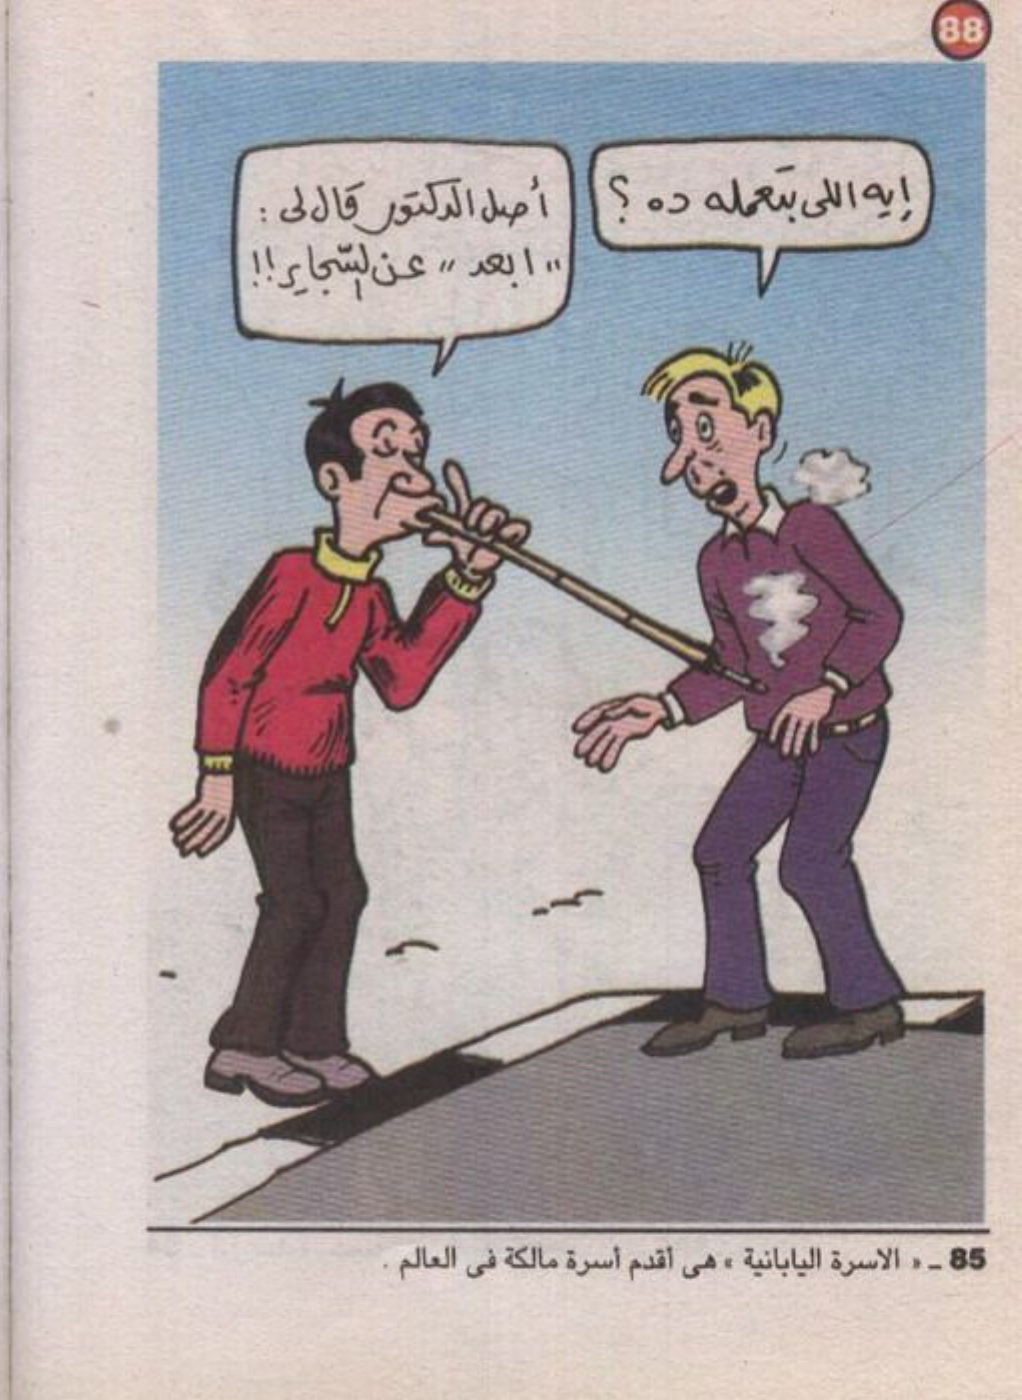 88
إيه اللى بتعمله ده ؟
أصل الدكتور قال لى :
"ابعد" عن السّجاير !!
85 ــ « الاسرة اليابانية » هى أقدم أسرة مالكة فى العالم .